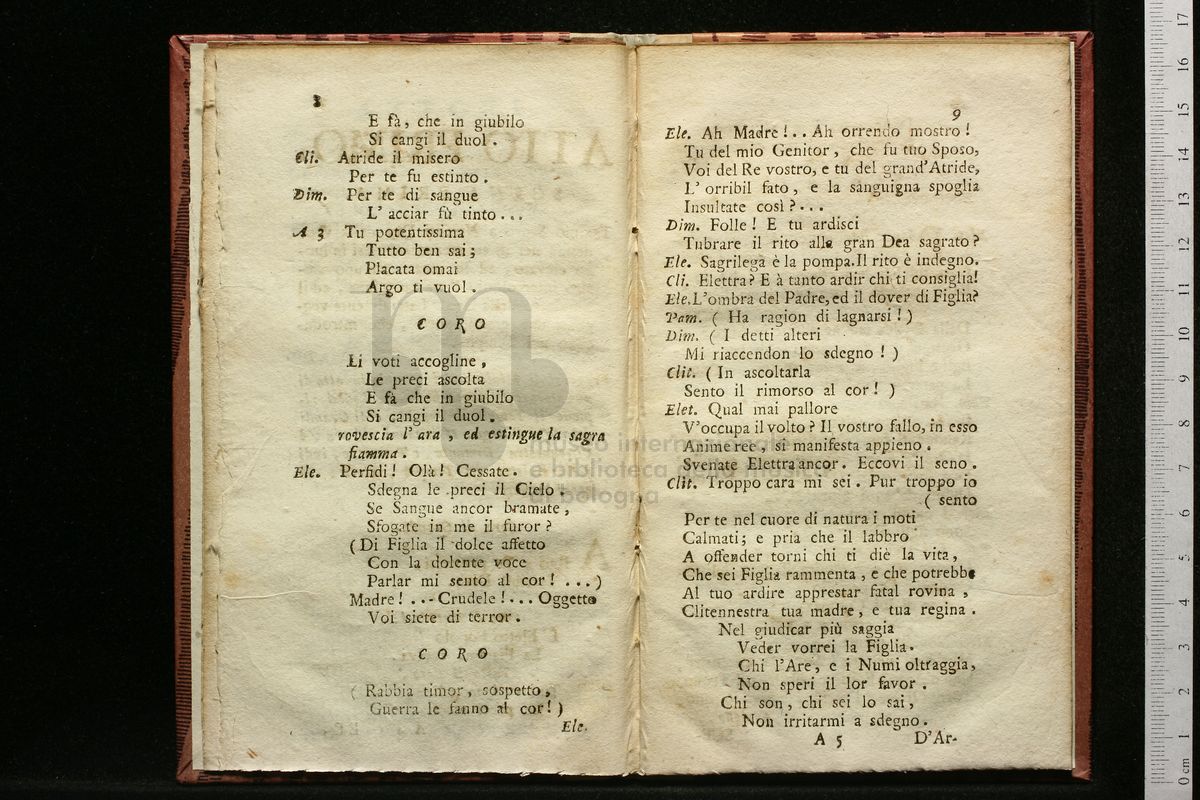 8
E fà, che in giubilo
Si cangi il duol.
Cli. Atride il misero
Per te fu estinto.
Dim. Per te di sangue
L' acciar fù tinto...
A 3 Tu potentissima
Tutto ben sai;
Placata omai
Argo ti vuol.
CORO
Li voti accogline,
Le preci ascolta
E fà che in giubilo
Si cangi il duol.
rovescia l' ara, ed estingue la sagra
fiamma.
Ele. Perfidi! Olà! Cessate.
Sdegna le preci il Cielo.
Se Sangue ancor bramate,
Sfogate in me il furor?
(Di Figlia il dolce affetto
Con la dolente voce
Parlar mi sento al cor!...)
Madre!..- Crudele!... Oggetto
Voi siete di terror.
CORO
(Rabbia timor, sospetto,
Guerra le fanno al cor!)
Ele.
9
Ele. Ah Madre!.. Ah orrendo mostro!
Tu del mio Genitor, che fu tuo Sposo,
Voi del Re vostro, e tu del grand'Atride,
L' orribil fato, e la sanguigna spoglia
Insultate così?...
Dim. Folle! E tu ardisci
Tubrare il rito alla gran Dea sagrato?
Ele. Sagrilega è la pompa. Il rito è indegno.
Cli. Elettra? E à tanto ardir chi ti consiglia!
Ele. L'ombra del Padre, ed il dover di Figlia?
Pam. (Ha ragion di lagnarsi!)
Dim. (I detti alteri
Mi riaccendon lo sdegno!)
Clit. (In ascoltarla
Sento il rimorso al cor!)
Elet. Qual mai pallore
V'occupa il volto? Il vostro fallo, in esso
Anime ree, si manifesta appieno.
Svenate Elettra ancor. Eccovi il seno.
Clit. Troppo cara mi sei. Pur troppo io
(sento
Per te nel cuore di natura i moti
Calmati; e pria che il labbro
A offender torni chi ti diè la vita,
Che sei Figlia rammenta, e che potrebbe
Al tuo ardire apprestar fatal rovina,
Clitennestra tua madre, e tua regina.
Nel giudicar più saggia
Veder vorrei la Figlia.
Chi l'Are, e i Numi oltraggia,
Non speri il lor favor.
Chi son, chi sei lo sai,
Non irritarmi a sdegno.
A 5 D'Ar-
museo internazionale
e biblioteca della musica
di bologna
0 cm 1 2 3 4 5 6 7 8 9 10 11 12 13 14 15 16 17